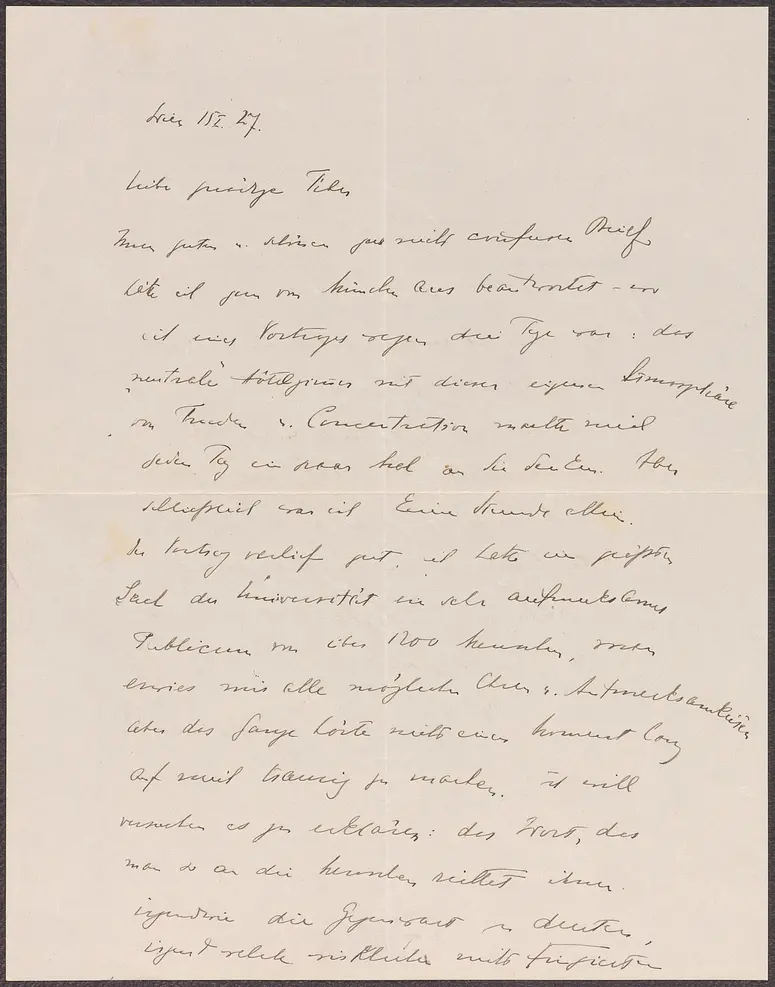 Wien 15 I. 27.
liebe gnädige Tilly
Ihren guten u. schönen gar nicht confusen Brief
hätte ich gern von München aus beantwortet – wo
ich eines Vortrages wegen drei Tage war: das
neutrale Hôtelzimmer mit dieser eigenen Atmosphäre
von Frieden u. Concentration machte mich
jeden Tag ein paar Mal an Sie denken. Aber
schließlich war ich keine Stunde allein.
Der Vortrag verlief gut, ich hatte im größten
Saal der Universität ein sehr aufmerksames
Publicum von über 1200 Menschen, man
erwies mir alle möglichen Ehren u. Aufmerksamkeiten
aber das Ganze hörte nicht einen Moment lang
auf mich traurig zu machen. Ich will
versuchen es zu erklären: das Wort, das
man so an die Menschen richtet ihnen
irgendwie die Gegenwart zu deuten,
irgend welche wirkliche nicht fingierten